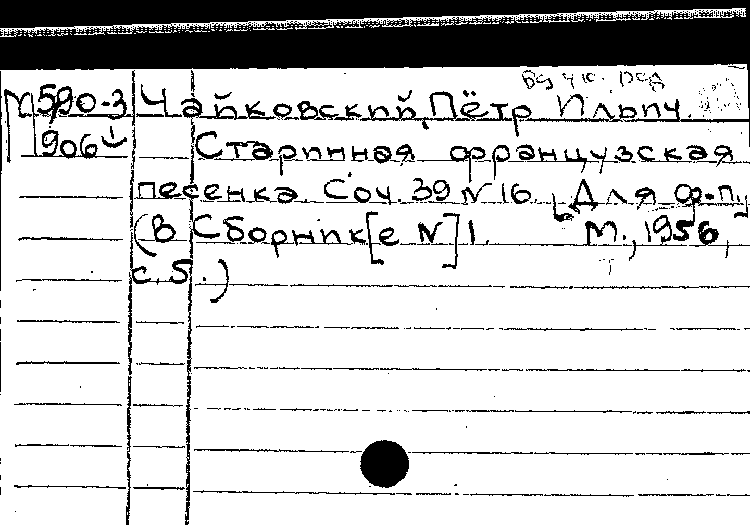 М590-3 Чайковский, Пётр Ильич.
906 Старинная французская
песенка. Соч. 39 N 16. [Для ф-п.]
(В Сборник[е N] 1. М., 1956,
с. 5.)